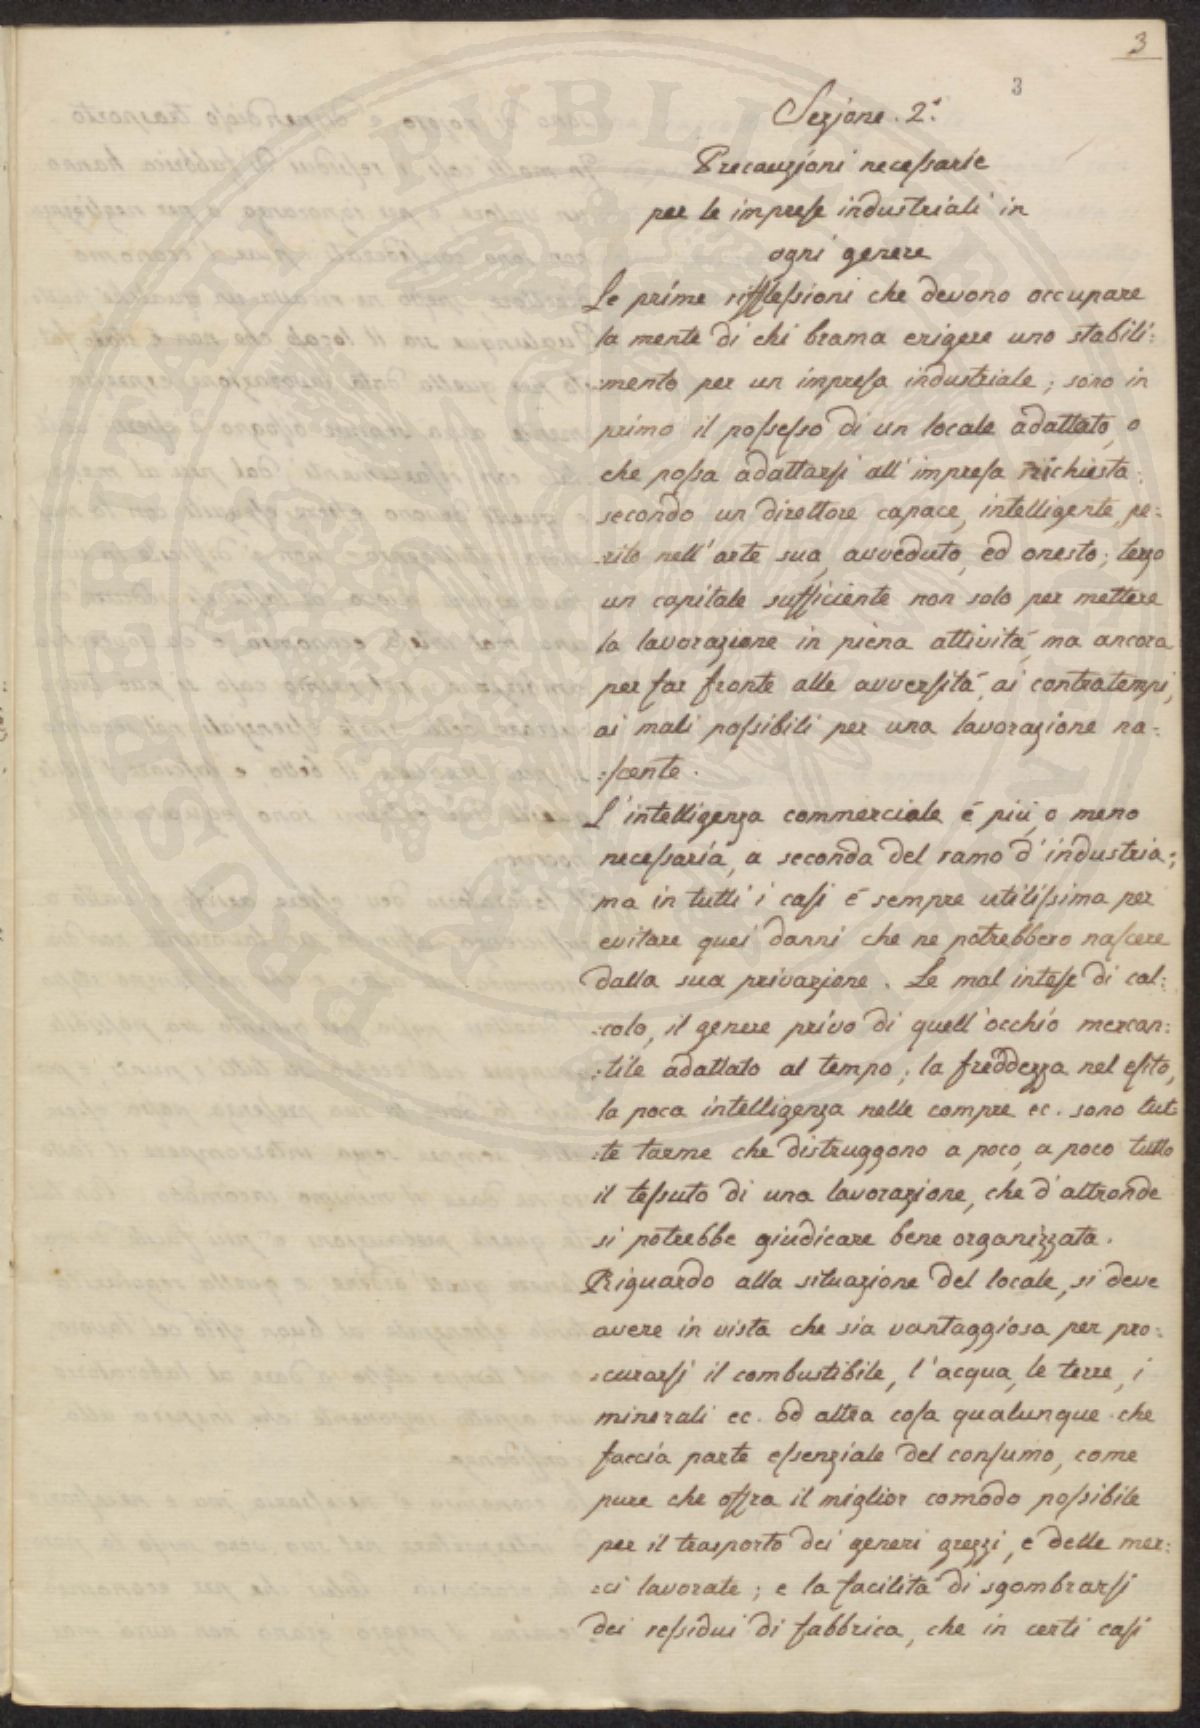 3
3
Sezione. 2.ª
Precauzioni necessarie
per le imprese industriali in
ogni genere
Le prime riflessioni che devono occupare
la mente di chi brama erigere uno stabili:
:mento per un impresa industriale; sono in
primo il possesso di un locale adattato, o
che possa adattarsi all'impresa richiesta:
secondo un direttore capace, intelligente, pe:
:rito nell'arte sua, avveduto, ed onesto; terzo
un capitale sufficiente non solo per mettere
la lavorazione in piena attività, ma ancora
per far fronte alle avversità, ai contratempi,
ai mali possibili per una lavorazione na:
:scente.
L'intelligenza commerciale é più, o meno
necessaria, a seconda del ramo d'industria;
ma in tutti i casi é sempre utilissima per
evitare quei danni che ne potrebbero nascere
dalla sua privazione. Le mal intese di cal:
:colo, il genere privo di quell'occhio mercan:
:tile adattato al tempo; la freddezza nel esito,
la poca intelligenza nelle compre ec. sono tut:
:te tarme che distruggono a poco, a poco tutto
il tessuto di una lavorazione, che d'altronde
si potrebbe giudicare bene organizzata.
Riguardo alla situazione del locale, si deve
avere in vista che sia vantaggiosa per pro:
:curarsi il combustibile, l'acqua, le terre, i
minerali ec. od altra cosa qualunque che
faccia parte essenziale del consumo, come
pure che offra il miglior comodo possibile
per il trasporto dei generi grezzi, e delle mer:
:ci lavorate; e la facilità di sgombrarsi
dei residui di fabbrica, che in certi casi